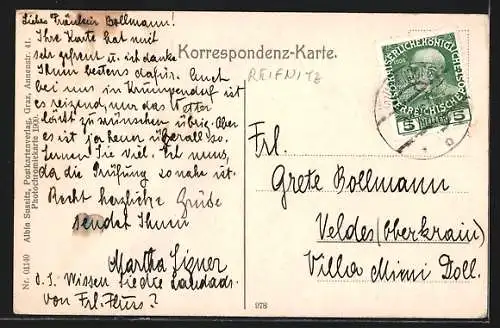 Liebes Fräulein Bollmann!
Ihre Karte hat mich
sehr gefreut u. ich danke
Ihnen bestens dafür. Auch
bei uns in Krumpendorf ist
es reizend, nur das Wetter
läßt zu wünschen übrig. Aber
es ist ja heuer überall so.
Lernen Sie viel. Ich muß,
da die Prüfung so nahe ist.
Recht herzliche Grüße
sendet Ihnen
Martha
Wissen Sie die
von Frl.
Korrespondenz-Karte.
REIFNITZ
5
Frl.
Grete Bollmann
Veldes (Oberkrain)
Villa Mimi Doll.
978
Nr. 01149 Albin Sussitz, Postkartenverlag, Graz, Annenstr. 41.
Photochromiekarte 1909.